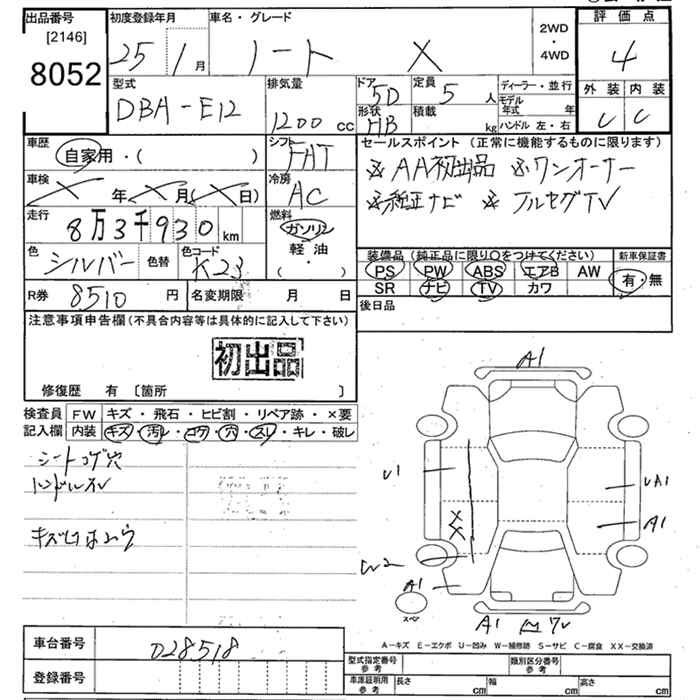 出品番号
[2146]
8052
初度登録年月
25 1月
車名・グレード
ノート X
2WD
・
4WD
評価点
4
外装 内装
C C
型式
DBA-E12
排気量
1200 cc
ドア
5D
形状
HB
定員
5人
積載
kg
ディーラー・並行
モデル
年式 年
ハンドル 左・右
車歴
自家用・( )
シフト
FAT
車検
X年X月(X日)
冷房
AC
走行
8万3千930km
燃料
ガソリン
軽・油
( ・ )
色
シルバー
色替
色コード
K23
R券
8510円
名変期限 月 日
セールスポイント(正常に機能するものに限ります)
※AA初出品 ※ワンオーナー
※純正ナビ ※フルセグTV
装備品(純正品に限り○をつけてください)
PS PW ABS エアB AW
SR ナビ TV カワ
新車保証書
有・無
後日品
注意事項申告欄(不具合内容等は具体的に記入して下さい)
初出品
修復歴 有 〔箇所 〕
検査員
記入欄
FW キズ・飛石・ヒビ割・リペア跡・×要
内装 キズ・汚レ・コゲ・穴・スレ・キレ・破レ
シートコゲ穴
ハンドルスレ
A1
U1
UA1
XX
A1
W2
A1
スペア
A1
A-キズ E-エクボ U-凹み W-補修跡 S-サビ C-腐食 XX-交換済
車台番号
028518
登録番号
型式指定番号
参考
類別区分番号
参考
車庫証明用
参考
長さ cm
幅 cm
高さ cm